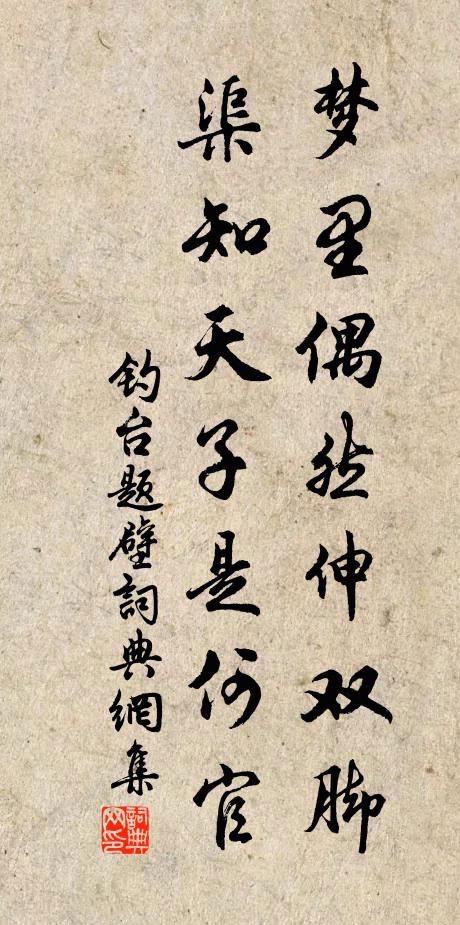 梦里偶然伸双脚
渠知天子是何官
钓台题壁词典網集
詞典網印